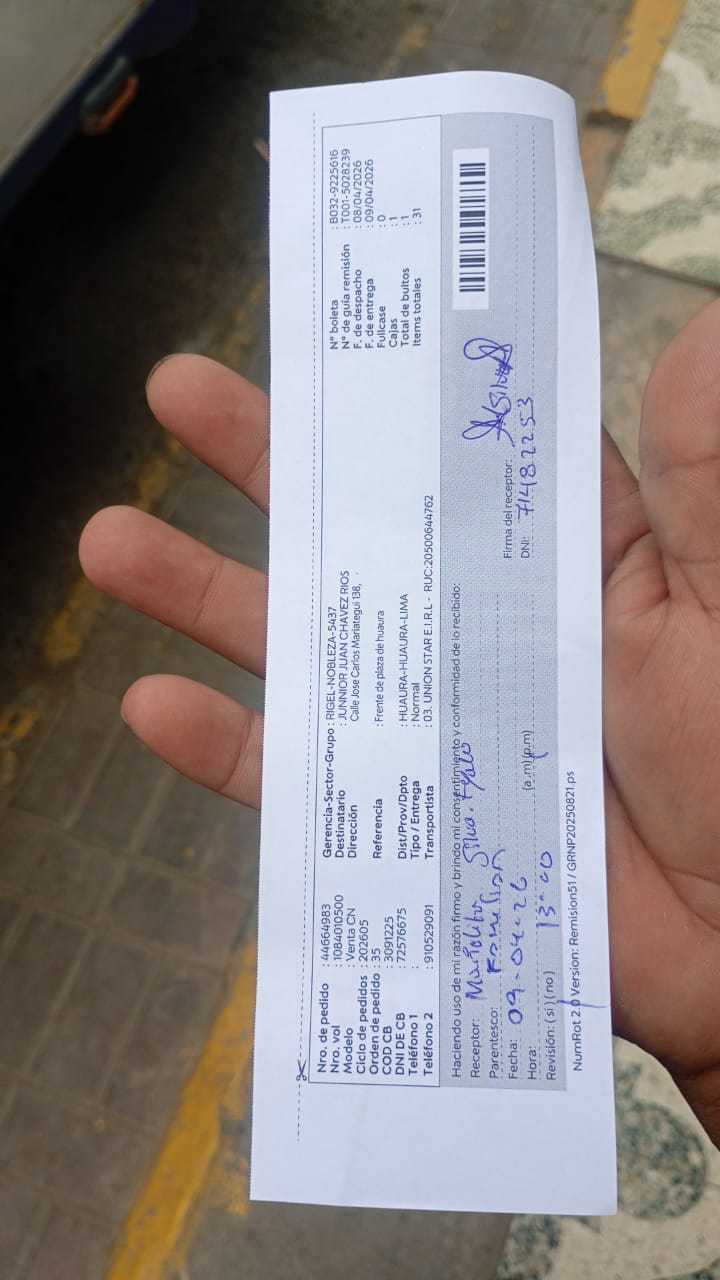 Nro. de pedido : 44664983
Nro. vol : 1084010500
Modelo Venta CN
Ciclo de pedidos : 202605
Orden de pedido : 35
COD CB : 3091225
DNI DE CB : 72576675
Teléfono 1 :
Teléfono 2 : 910529091
Gerencia-Sector-Grupo : RIGEL-NOBLEZA-5437
Destinatario : JUNNIOR JUAN CHAVEZ RIOS
Dirección Calle Jose Carlos Mariategui 138,
Referencia : Frente de plaza de huaura
Dist/Prov/Dpto : HUAURA-HUAURA-LIMA
Tipo / Entrega : Normal
Transportista : 03. UNION STAR E.I.R.L - RUC:20500644762
N° boleta : B032-9225616
N° de guía remisión : T001-5028239
F. de despacho : 08/04/2026
F. de entrega : 09/04/2026
Fullcase : 0
Cajas : 1
Total de bultos : 1
Items totales : 31
Haciendo uso de mi razón firmo y brindo mi consentimiento y conformidad de lo recibido:
Receptor: Silva
Parentesco:
Fecha: 09-04-26
Hora: 13:00 (a.m) (p.m)
Revisión: (si) (no)
Firma del receptor:
DNI: 71482253
NumRot 2.0 Version: Remision51 / GRNP20250821.ps